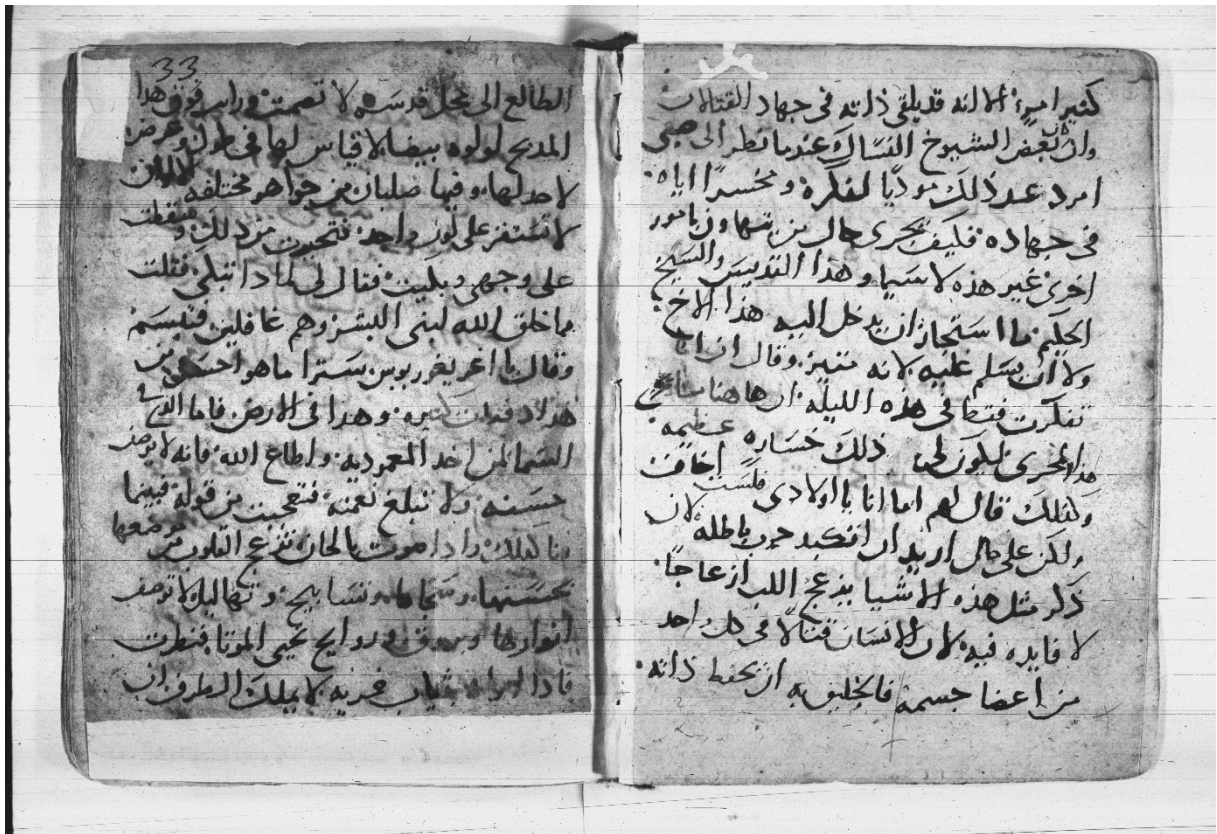 كثيرا مره الا انه قد يلقي ذاته فى جهاد القتالات
وان بعض الشيوخ النساك عندما نظر الى صبى
امرد عد ذلك موديا لفكره ومخسرا اياه
فى جهاده فكيف يجرى حال من يتهاون بامور
اخرى غير هذه لا سيما وهذا القديس والشيخ
الحكيم ما استجاز ان يدخل اليه هذا الاخ
ولا ان يسلم عليه لانه متميز وقال ان انا
تفكرت فقط فى هذه الليله ان هاهنا
هذا المجرى ليكون لى ذلك خساره عظيمه
وكذلك قال لهم اما انا يا اولادى فلست اخاف
ولكن على حال اريد ان حرب باطله لان
ذكر مثل هذه الاشيا يزعج اللب ازعاجا
لا فايده فيه لان للانسان قتالا فى كل واحد
من اعضا جسمه فالخليق به ان يحفظ ذاته
33
الطالع الى محل قدسه لا تصمت ورايت فوق هذا
المذبح لولوه بيضا لا قياس لها فى طول وعرض
لا حد لها وفيها صلبان من جواهر مختلفه الالوان
لا تستقر على لون واحد فتحيرت من ذلك وسقطت
على وجهى وبكيت فقال لى لماذا تبكى فقلت
ما خلق الله لبنى البشر وهم غافلين فتبسم
وقال يا اغريغوريوس سترا ما هو احسن من
هذا دفعات كثيره وهدا فى الارض فاما الذى فى
السما لمن اخد المعموديه واطاع الله فانه لا يوصف
حسنه ولا تبلغ نعمته فتعجبت من قوله فبينما
انا كذلك وادا صوت بالحان تزعج القلوب من موضعها
بحسنها وتسابيح وتهاليل لا توصف
انوارها وروايح تحيى الموتا فنظرت
فادا بثياب لا يملك الطرف ان